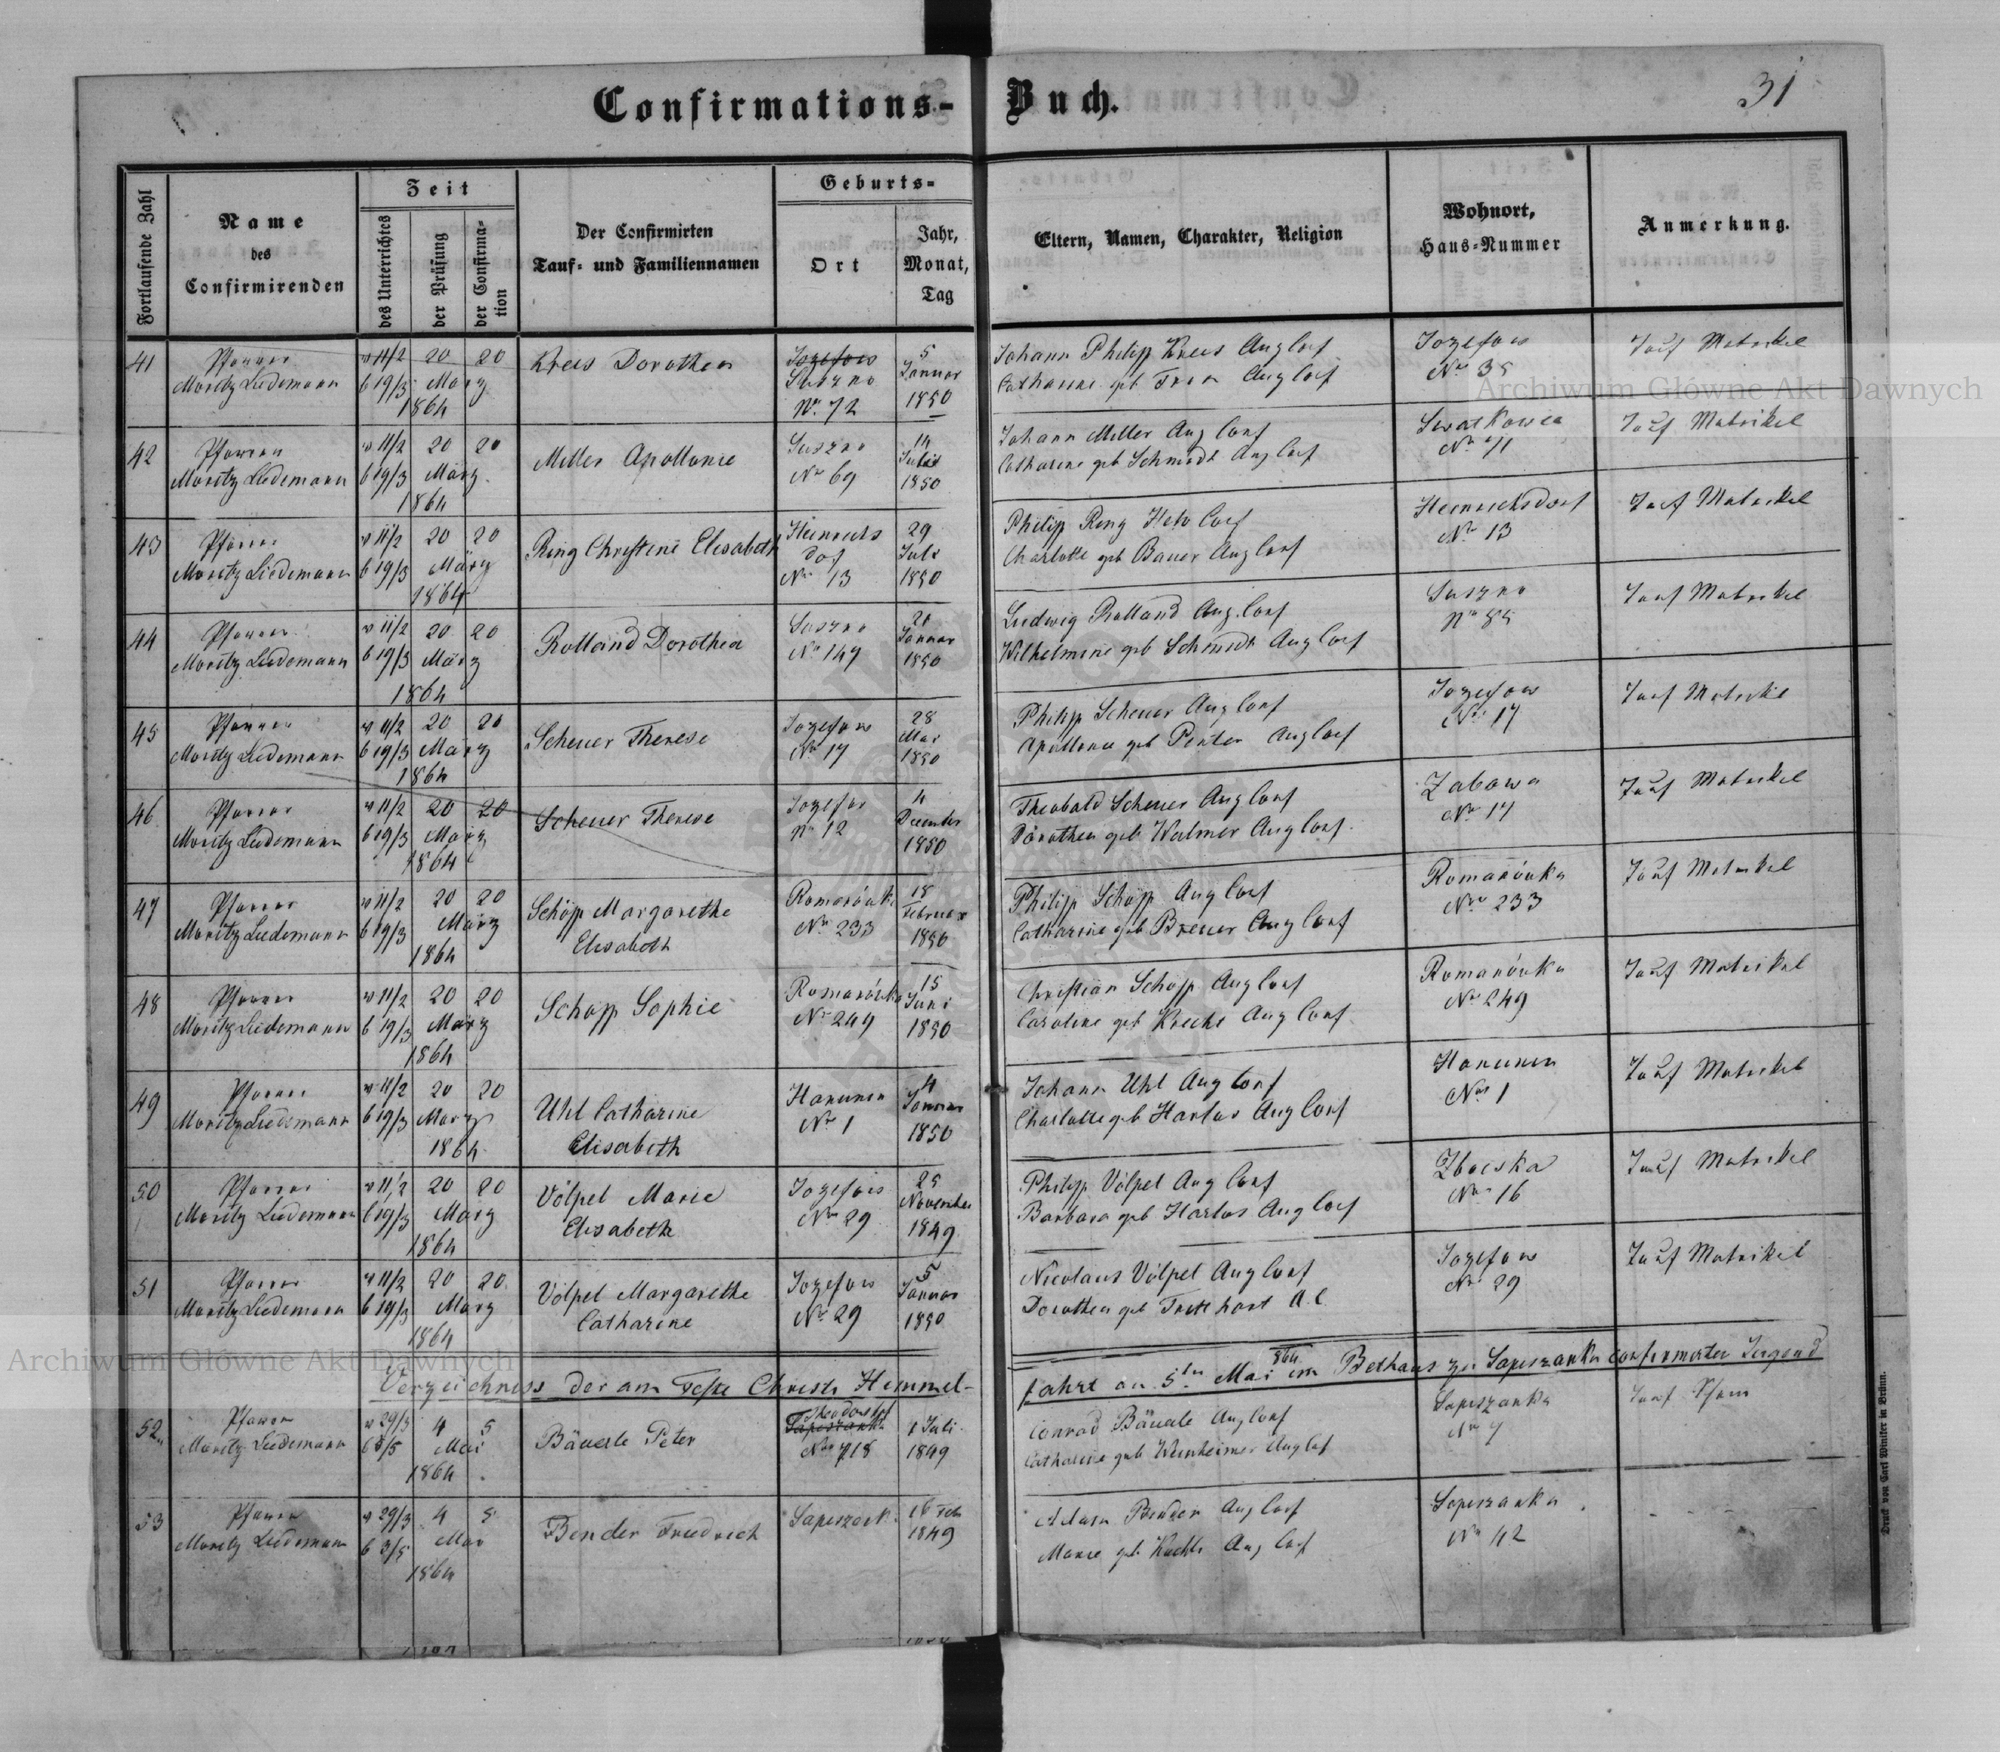 Confirmations-Buch.
31
Fortlaufende Zahl
Name
des
Confirmirenden
Zeit
des Unterrichtes
der Prüfung
der Confirma-
tion
Der Confirmirten
Tauf- und Familiennamen
Geburts-
Ort
Jahr,
Monat,
Tag
Eltern, Namen, Charakter, Religion
Wohnort,
Haus-Nummer
Anmerkung.
41
Pfarrer
Moritz Liedemann
v 11/2
b 19/3
20
März
1864
20
Krees Dorothea
Jozefow
Suszno
Nr. 72
5
Januar
1850
Johann Philipp Krees Augs Conf
Catharine geb Augs Conf
Jozefow
Nr 35
Tauf Matrikel
42
Pfarrer
Moritz Liedemann
v 11/2
b 19/3
20
März
1864
20
Miller Apollonie
Suszno
Nr 69
14
Juli
1850
Johann Miller Aug Conf
Catharine geb Schmidt Aug Conf
Nr 71
Tauf Matrikel
43
Pfarrer
Moritz Liedemann
v 11/2
b 19/3
20
März
1864
20
Ring Christine Elisabeth
Heinrichs
dof
Nr 13
29
Juli
1850
Philipp Ring Helv Conf
Charlotte geb Bauer Aug Conf
Heinrichsdorf
Nr 13
Tauf Matrikel
44
Pfarrer
Moritz Liedemann
v 11/2
b 19/3
20
März
1864
20
Rolland Dorothea
Suszno
Nr 149
21
Januar
1850
Ludwig Rolland Aug. Conf
Wilhelmine geb Schmidt Aug Conf
Suszno
Nr 85
Tauf Matrikel
45
Pfarrer
Moritz Liedemann
v 11/2
b 19/3
20
März
1864
20
Scheuer Therese
Jozefow
Nr 17
28
Mai
1850
Philipp Scheuer Aug Conf
Apollonia geb Aug Conf
Jozefow
Nr 17
Tauf Matrikel
46
Pfarrer
Moritz Liedemann
v 11/2
b 19/3
20
März
1864
20
Scheuer Therese
Jozefow
Nr 12
4
December
1850
Theobald Scheuer Aug Conf
Dorothea geb Walmer Aug Conf.
Zabawa
Nr 17
Tauf Matrikel
47
Pfarrer
Moritz Liedemann
v 11/2
b 19/3
20
März
1864
20
Schöpp Margarethe
Elisabeth
Romanówka
Nr 233
18
Februar
1850
Philipp Schöpp Aug Conf
Catharine geb Breuer Aug Conf
Romanówka
Nr 233
Tauf Matrikel
48
Pfarrer
Moritz Liedemann
v 11/2
b 19/3
20
März
1864
20
Schöpp Sophie
Romanówka
Nr 249
15
Juni
1850
Christian Schöpp Aug Conf
Caroline geb Aug Conf
Romanówka
Nr 249
Tauf Matrikel
49
Pfarrer
Moritz Liedemann
v 11/2
b 19/3
20
März
1864
20
Uhl Catharine
Elisabeth
Hanunin
Nr 1
4
Januar
1850
Johann Uhl Aug Conf
Charlotte geb Harlas Aug Conf
Hanunin
Nr 1
Tauf Matrikel
50
Pfarrer
Moritz Liedemann
v 11/2
b 19/3
20
März
1864
20
Völpel Marie
Elisabeth
Jozefow
Nr 29
25
November
1849
Philipp Völpel Aug Conf
Barbara geb Harlas Aug Conf
Zboiska
Nr 16
Tauf Matrikel
51
Pfarrer
Moritz Liedemann
v 11/2
b 19/3
20
März
1864
20
Völpel Margarethe
Catharine
Jozefow
Nr 29
5
Januar
1850
Nicolaus Völpel Aug Conf
Dorothea geb A. C.
Jozefow
Nr 29
Tauf Matrikel
Verzeichniss der am Feste Christi Himmel-
fahrt am 5ten Mai 864 im Bethaus zu Sapieszanka confirmirten Jugend
52
Pfarrer
Moritz Liedemann
v 29/3
b 3/5
4
Mai
1864
5
Bäuerle Peter
Sapieszanka
Nr 18
1 Juli
1849
Conrad Bäuerle Aug Conf
Catharine geb Weinheimer Aug Conf
Sapieszanka
Nr 7
53
Pfarrer
Moritz Liedemann
v 29/3
b 3/5
4
Mai
1864
5
Bender Friedrich
Sapieszank
16 Feb
1849
Adam Bender Aug Conf
Marie geb Aug Conf
Sapieszanka
Nr 42
Druck von Carl Winiker in Brünn.
Archiwum Główne Akt Dawnych
Archiwum Główne Akt Dawnych